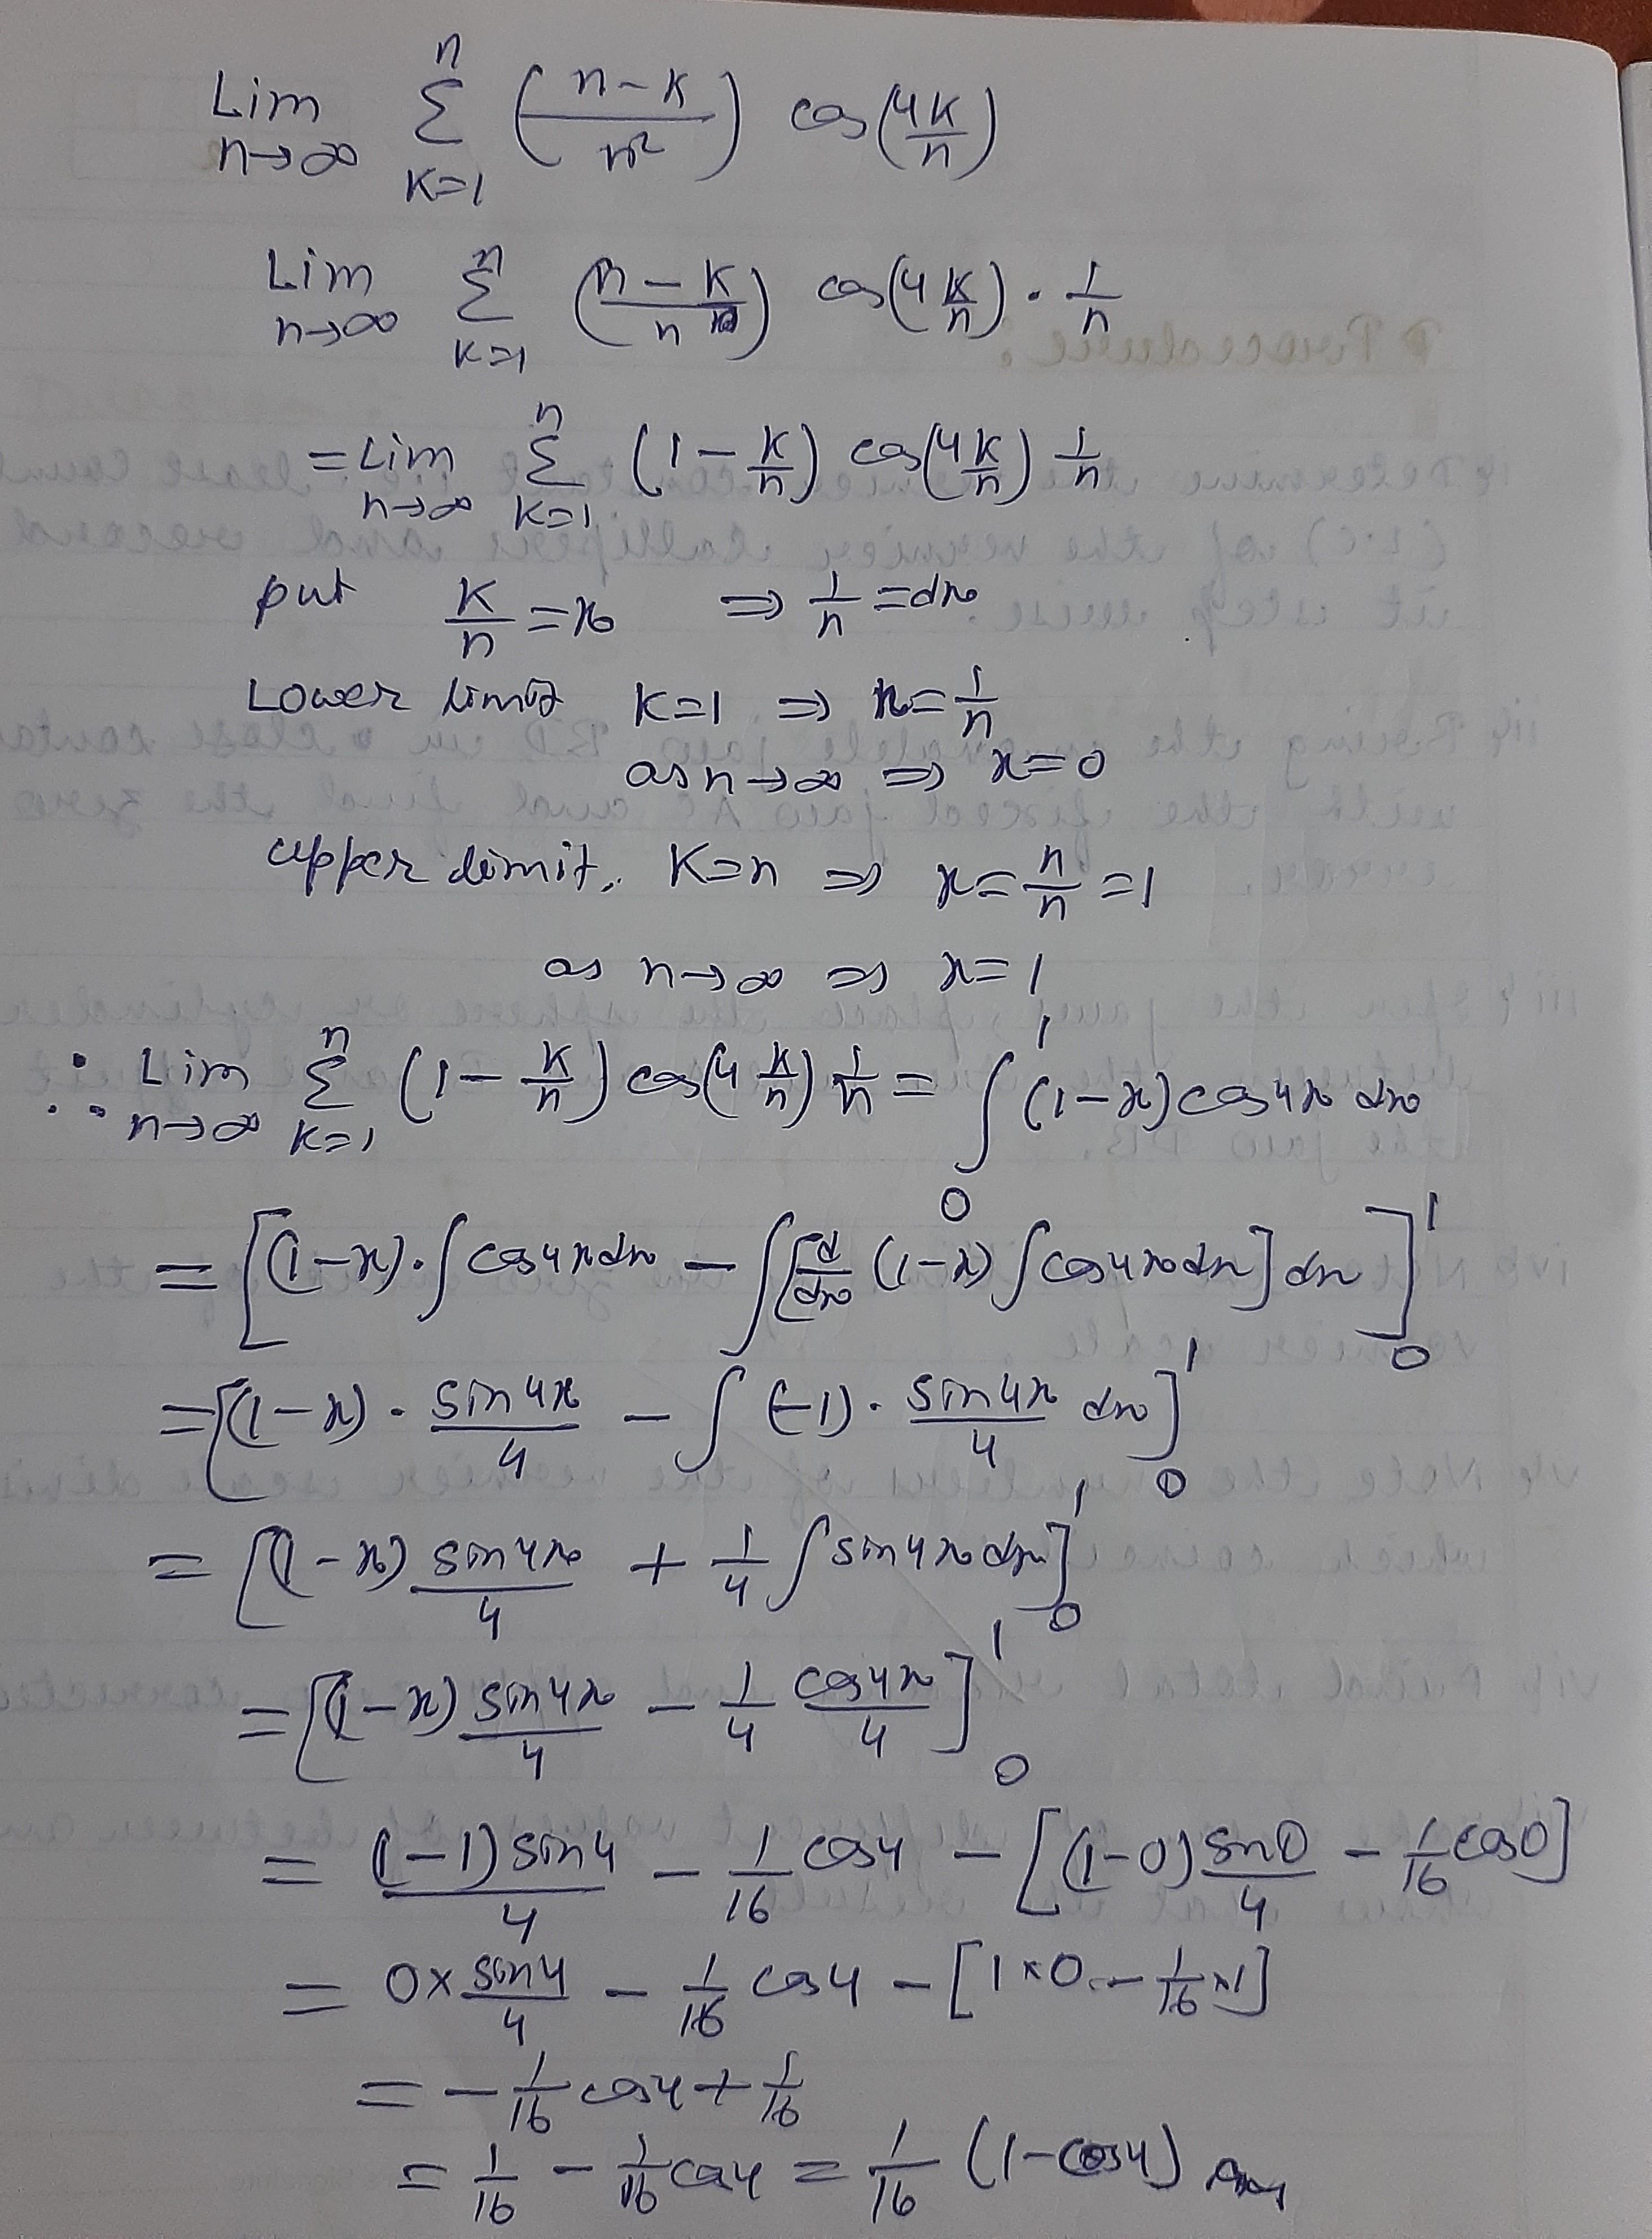 Lim n→∞ n Σ K=1 (n-K/n²) cos(4K/n)
Lim n→∞ n Σ K=1 (n-K/n) cos(4K/n) · 1/n
= Lim n→∞ n Σ K=1 (1-K/n) cos(4K/n) 1/n
put K/n = x ⇒ 1/n = dx
Lower limit K=1 ⇒ x = 1/n
as n→∞ ⇒ x=0
upper limit, K=n ⇒ x = n/n = 1
as n→∞ ⇒ x=1
∴ Lim n→∞ n Σ K=1 (1-K/n) cos(4K/n) 1/n = ∫₀¹ (1-x) cos4x dx
= [(1-x)·∫cos4x dx - ∫[d/dx (1-x) ∫cos4x dx] dx]₀¹
= [(1-x)· sin4x/4 - ∫(-1)· sin4x/4 dx]₀¹
= [(1-x) sin4x/4 + 1/4 ∫sin4x dx]₀¹
= [(1-x) sin4x/4 - 1/4 cos4x/4]₀¹
= (1-1) sin4/4 - 1/16 cos4 - [(1-0) sin0/4 - 1/16 cos0]
= 0× sin4/4 - 1/16 cos4 - [1×0 - 1/16×1]
= -1/16 cos4 + 1/16
= 1/16 - 1/16 cos4 = 1/16 (1-cos4) Ans